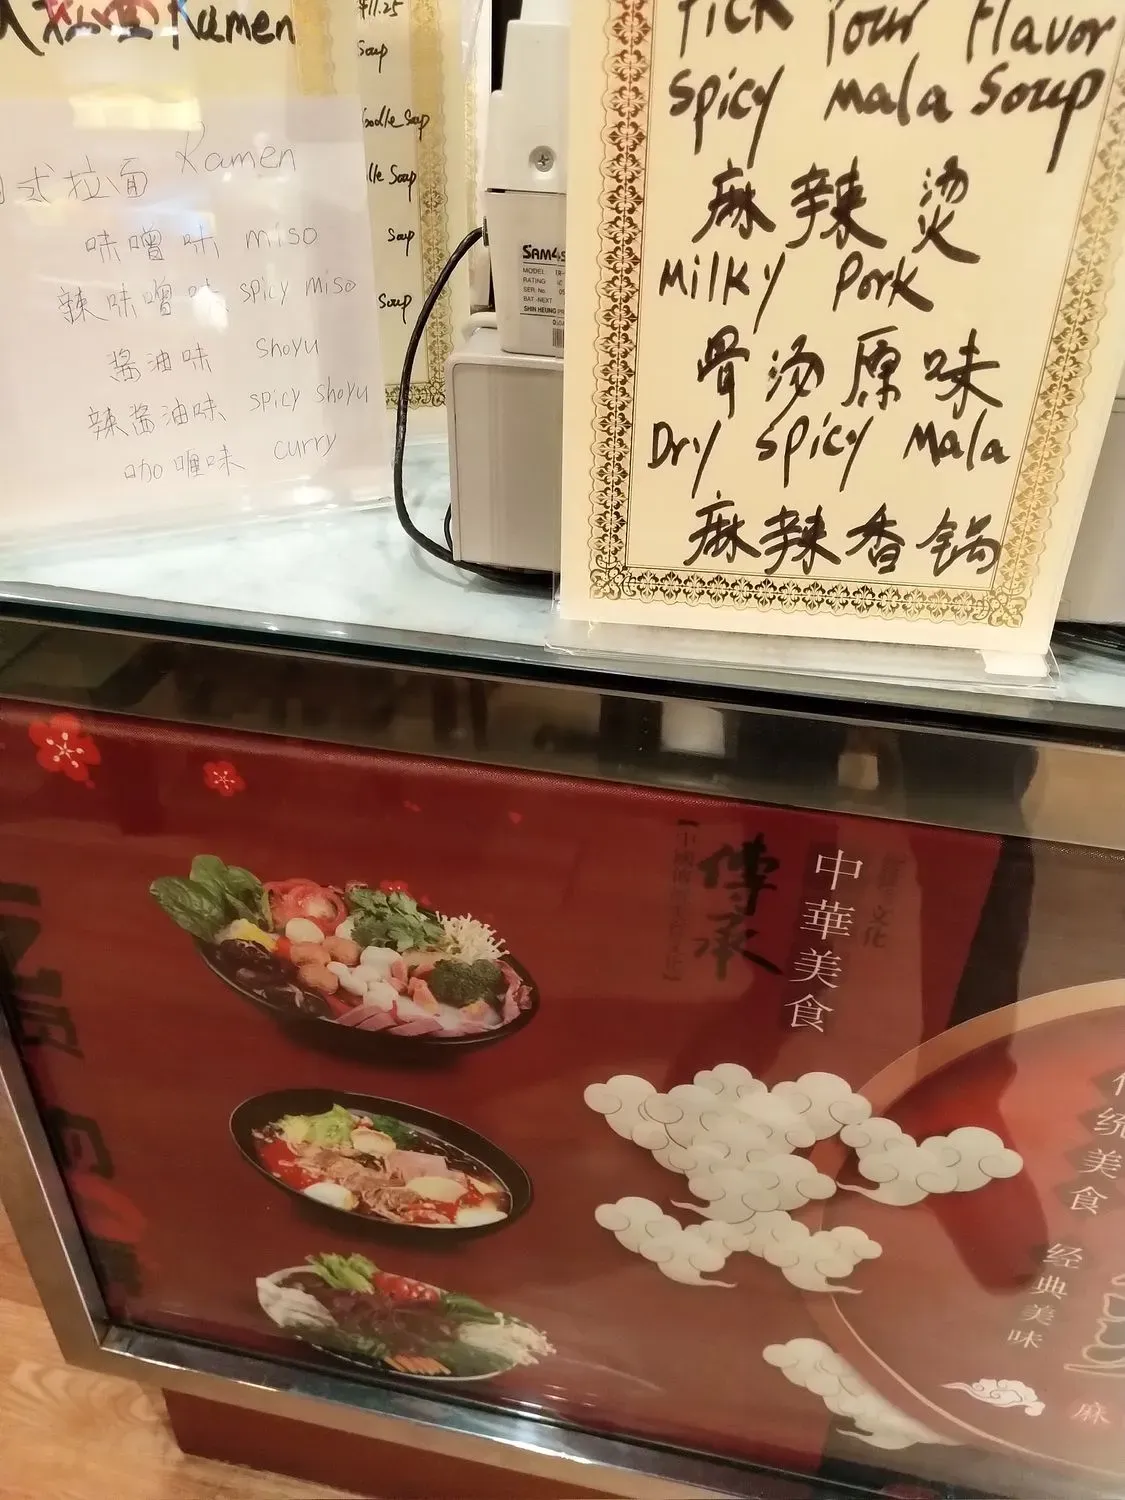 Ramen
$11.25
Soup
Noodle Soup
Soup
Soup
Soup
式拉面 Ramen
味噌味 miso
辣味噌味 spicy miso
酱油味 shoyu
辣酱油味 spicy shoyu
咖喱味 curry
SAM4S
MODEL
RATING
SER. No.
BAT.-NEXT
SHIN HEUNG
Pick Your Flavor
Spicy Mala Soup
麻辣烫
Milky Pork
骨汤原味
Dry Spicy Mala
麻辣香锅
傳承
中華美食
文化
传统美食
经典美味
麻